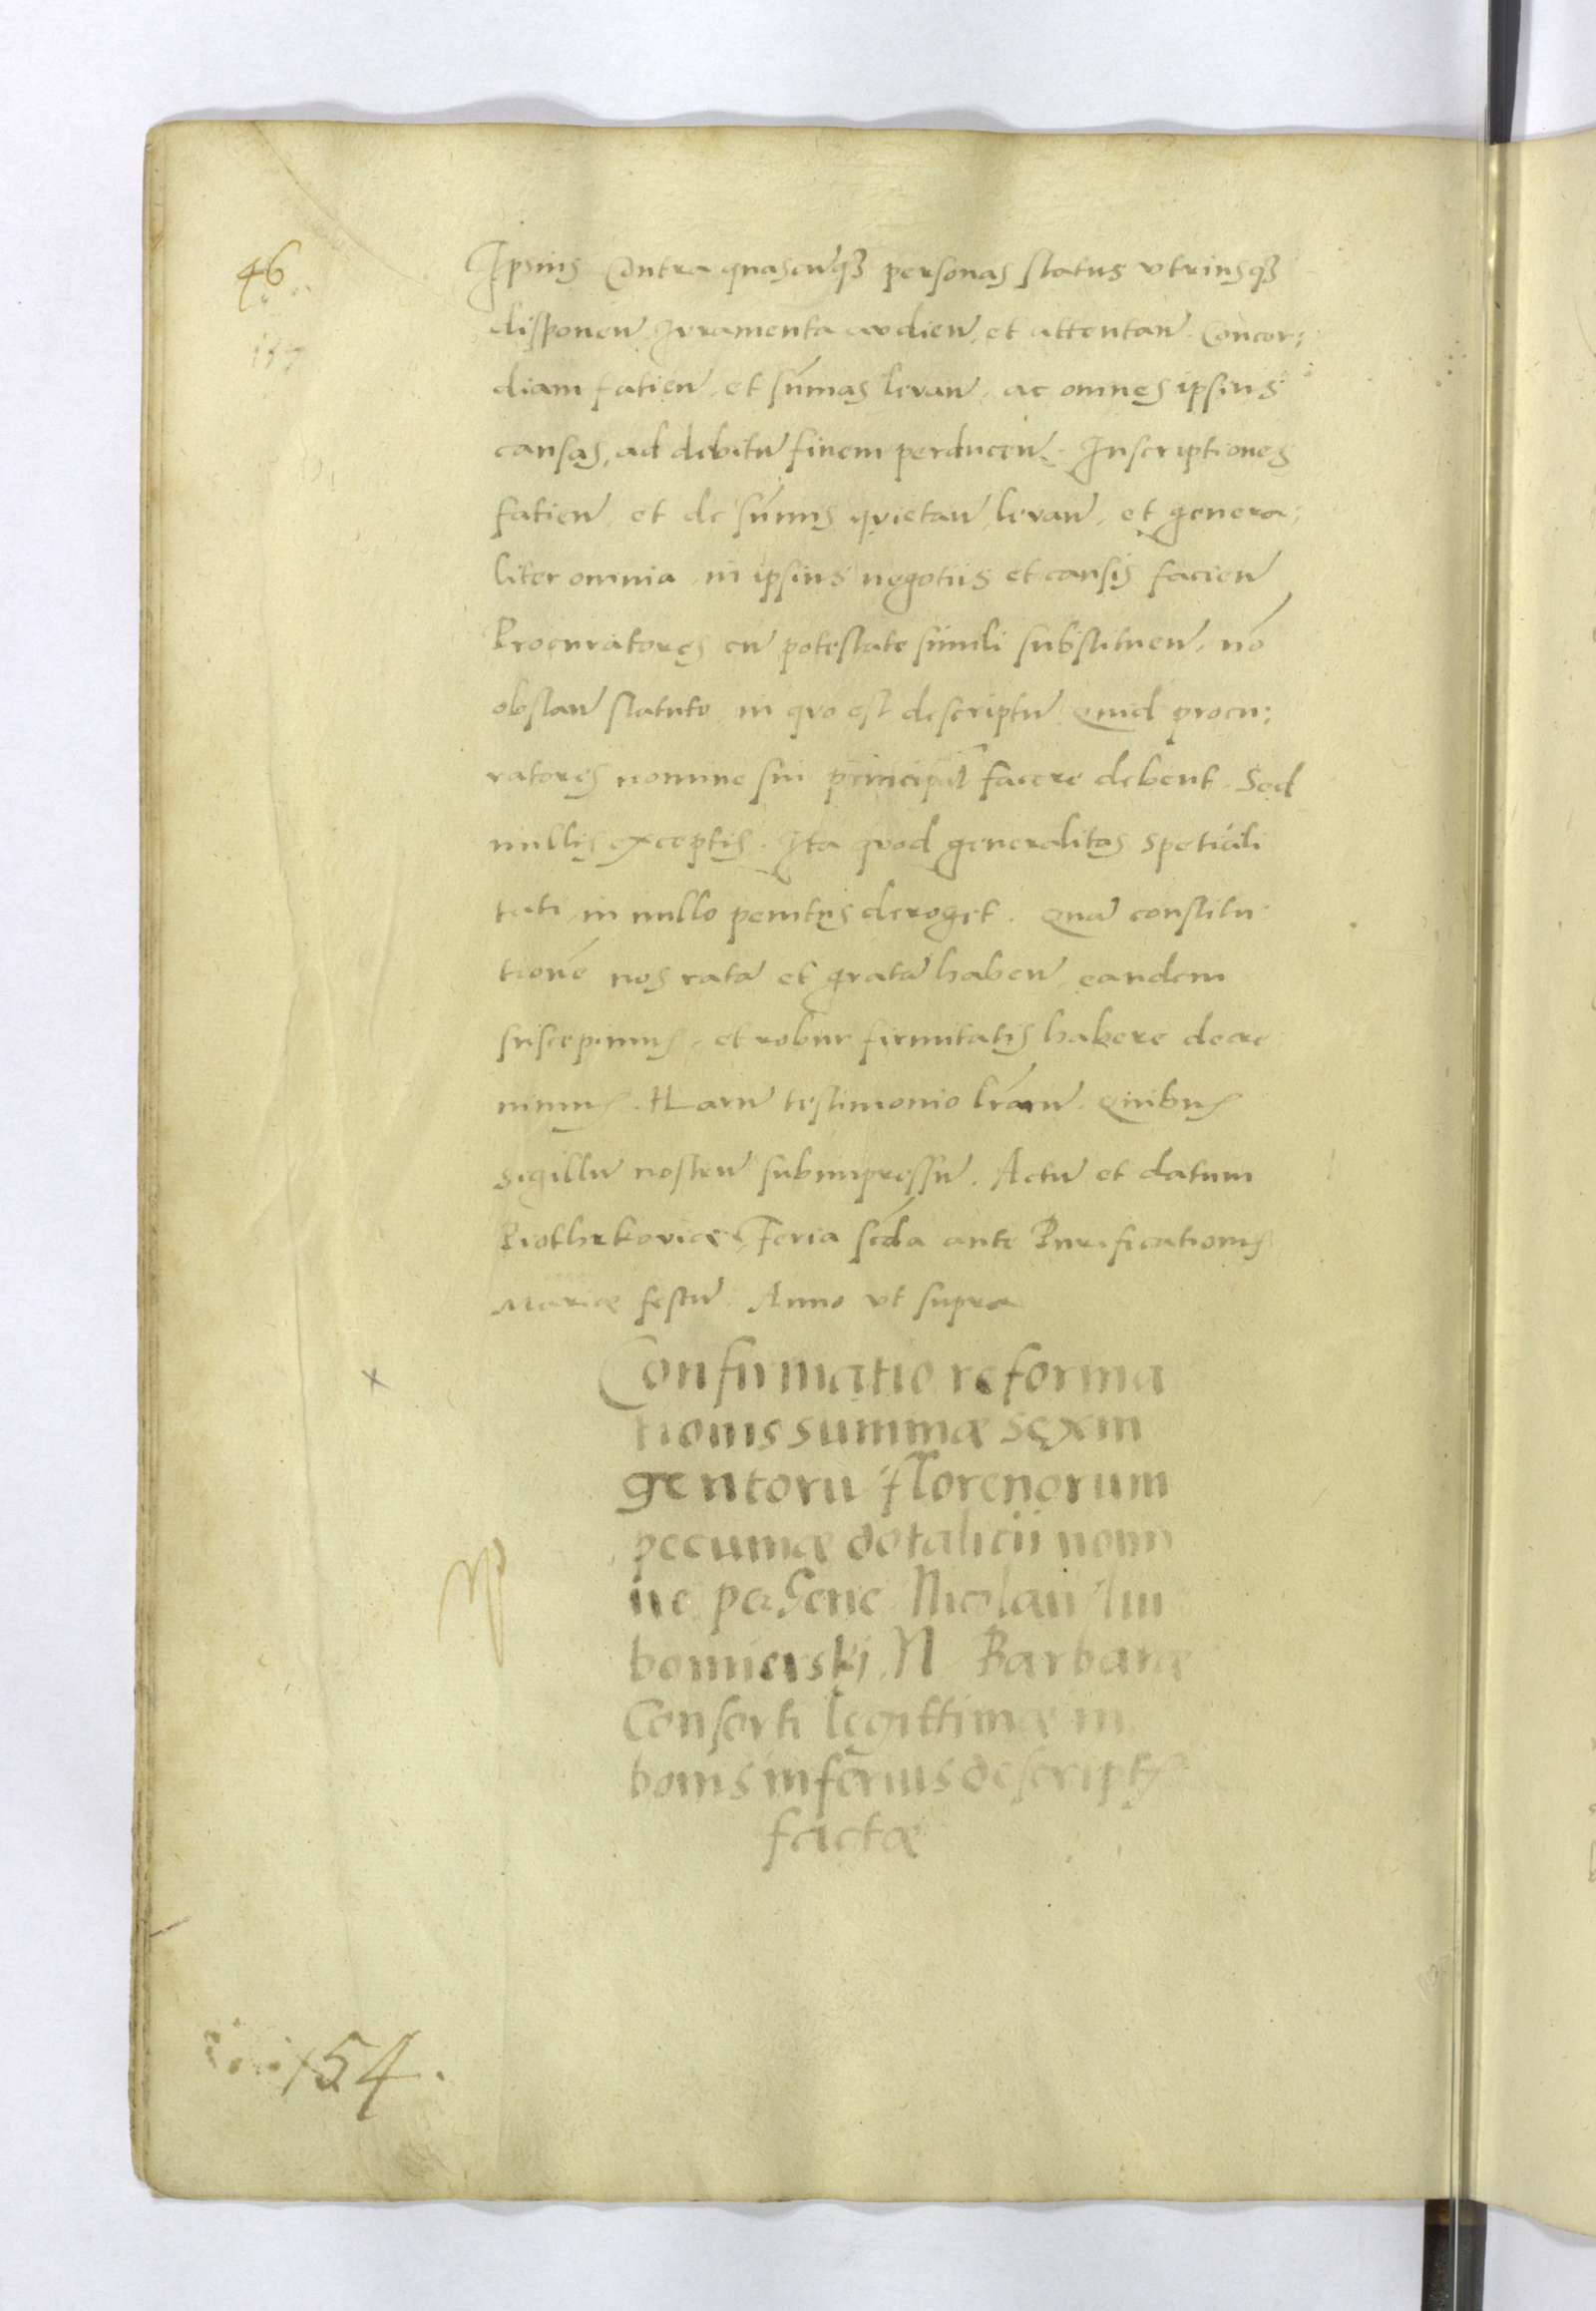 46
Ipsius Contra quascu̅q3 personas status vtriusq3
disponen̄ Iuramenta audien̄ et attentan̄ Concor:
diam fatien̄ et sūmas levan̄ ac omnes ipsius
causas, ad debitū finem perducen̄. Inscriptiones
fatien̄ et de sūmis quietan̄ levan̄ et genera:
liter omnia in ipsius negotiis et causis facien̄
Procuratores cū potestate simili substituen̄, nō
obstan̄ statuto in quo est descriptū Quid procu:
ratores nomine sui principal̄ facere debent. Sed
nullis exceptis. Ita quod generalitas spetiali
tati in nullo penitus deroget. Quā constitu
tionē nos ratā et gratā haben̄ eandem
suscepimus et robur firmitatis habere decre
uimus. Harū testimonio lr̄arū. Quibus
sigillū nostrū subimpressū. Actū et datum
Piothrkoviæ Feria scd̄a ante Purificationis
Mariæ festū. Anno vt supra
Confirmatio reforma
tionis summæ sexin
gentorū florenorum
pecuniæ dotalicii nomi
ne per Gene Nicolau lu
bomierski N Barbaræ
Consorti legittimæ in
bonis inferius descriptis
factæ
154.